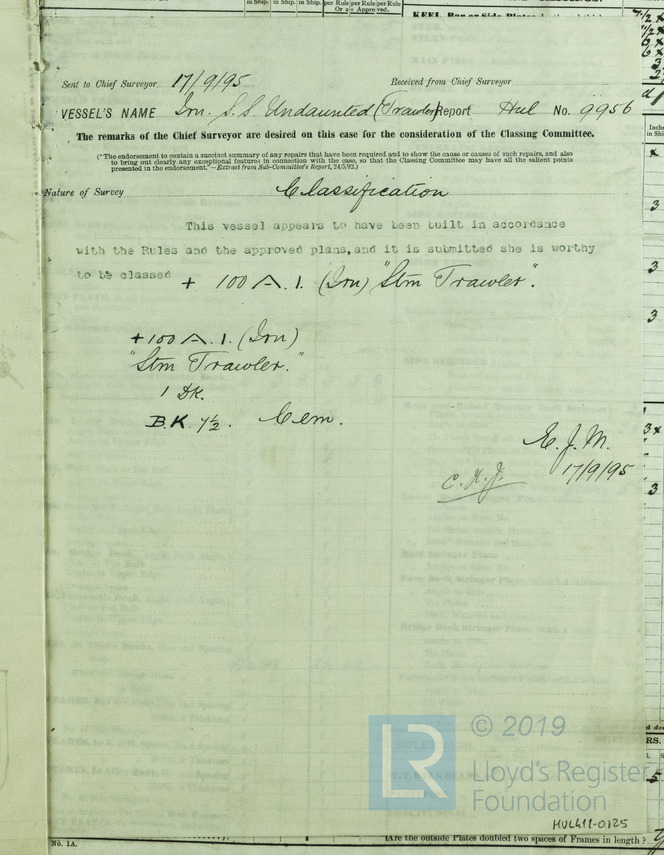 in Ship. in Ship. in Ship. per Rule per Rule per Rule
Or as Approved.
KEEL, Bar or Side Plates
Sent to Chief Surveyor 17/9/95 Received from Chief Surveyor
VESSEL'S NAME Irn. S.S. Undaunted (Trawler) Report Hul No. 9956
The remarks of the Chief Surveyor are desired on this case for the consideration of the Classing Committee.
(*The endorsement to contain a succinct summary of any repairs that have been required and to show the cause or causes of such repairs, and also
to bring out clearly any exceptional features in connection with the case, so that the Classing Committee may have all the salient points
presented in the endorsement."—Extract from Sub-Committee's Report, 24/5/92.)
Nature of Survey Classification
This vessel appears to have been built in accordance
with the Rules and the approved plans, and it is submitted she is worthy
to be classed + 100 A. 1. (Irn) "Stm Trawler".
+ 100 A. 1. (Irn)
"Stm Trawler."
1 Dk.
B.K. 7½. Cem.
E. J. M.
17/9/95
© 2019
LR
Lloyd's Register
Foundation
HUL411-0125
No. 1A.
(Are the outside Plates doubled two spaces of Frames in length?